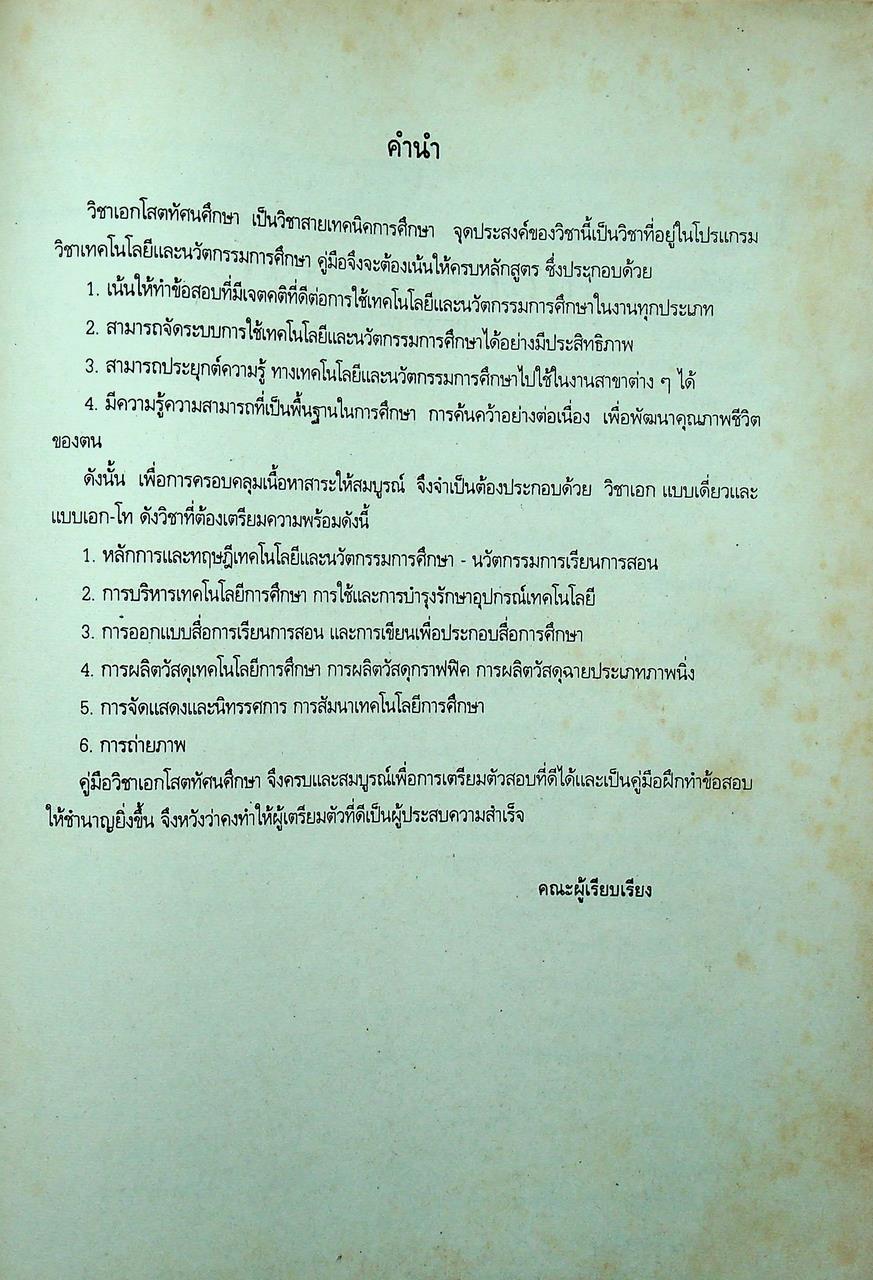 คำนำ
วิชาเอกโสตทัศนศึกษา เป็นวิชาสายเทคนิคการศึกษา จุดประสงค์ของวิชานี้เป็นวิชาที่อยู่ในโปรแกรม
วิชาเทคโนโลยีและนวัตกรรมการศึกษา คู่มือจึงจะต้องเน้นให้ครบหลักสูตร ซึ่งประกอบด้วย
1. เน้นให้ทำข้อสอบที่มีเจตคติที่ดีต่อการใช้เทคโนโลยีและนวัตกรรมการศึกษาในงานทุกประเภท
2. สามารถจัดระบบการใช้เทคโนโลยีและนวัตกรรมการศึกษาได้อย่างมีประสิทธิภาพ
3. สามารถประยุกต์ความรู้ ทางเทคโนโลยีและนวัตกรรมการศึกษาไปใช้ในงานสาขาต่าง ๆ ได้
4. มีความรู้ความสามารถที่เป็นพื้นฐานในการศึกษา การค้นคว้าอย่างต่อเนื่อง เพื่อพัฒนาคุณภาพชีวิต
ของตน
ดังนั้น เพื่อการครอบคลุมเนื้อหาสาระให้สมบูรณ์ จึงจำเป็นต้องประกอบด้วย วิชาเอก แบบเดี่ยวและ
แบบเอก-โท ดังวิชาที่ต้องเตรียมความพร้อมดังนี้
1. หลักการและทฤษฎีเทคโนโลยีและนวัตกรรมการศึกษา - นวัตกรรมการเรียนการสอน
2. การบริหารเทคโนโลยีการศึกษา การใช้และการบำรุงรักษาอุปกรณ์เทคโนโลยี
3. การออกแบบสื่อการเรียนการสอน และการเขียนเพื่อประกอบสื่อการศึกษา
4. การผลิตวัสดุเทคโนโลยีการศึกษา การผลิตวัสดุกราฟฟิค การผลิตวัสดุฉายประเภทภาพนิ่ง
5. การจัดแสดงและนิทรรศการ การสัมนาเทคโนโลยีการศึกษา
6. การถ่ายภาพ
คู่มือวิชาเอกโสตทัศนศึกษา จึงครบและสมบูรณ์เพื่อการเตรียมตัวสอบที่ดีได้และเป็นคู่มือฝึกทำข้อสอบ
ให้ชำนาญยิ่งขึ้น จึงหวังว่าคงทำให้ผู้เตรียมตัวที่ดีเป็นผู้ประสบความสำเร็จ
คณะผู้เรียบเรียง